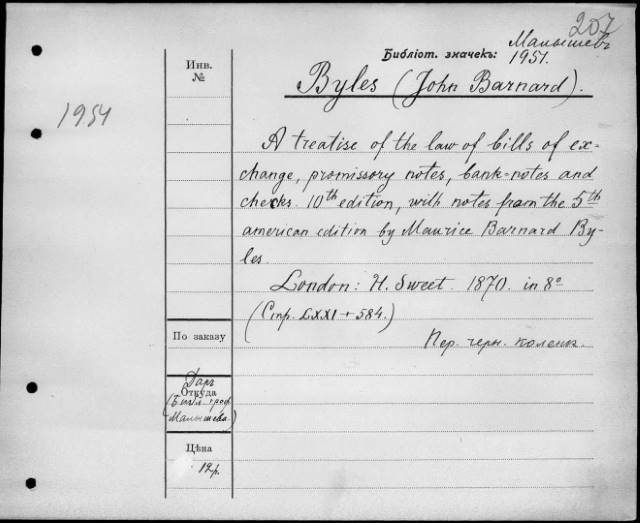 207
Малышевъ
Библіот. значекъ: 1951.
Инв.
№
1954
Byles (John Barnard).
A treatise of the law of bills of ex-
change, promissory notes, bank-notes and
checks. 10th edition, with notes from the 5th
american edition by Maurice Barnard By-
les.
London: H. Sweet. 1870. in 8º
(Стр. LXXI + 584.)
Пер. черн. коленк.
По заказу
Даръ
Откуда
(Библ. проф.
Малышева)
Цѣна
12р.